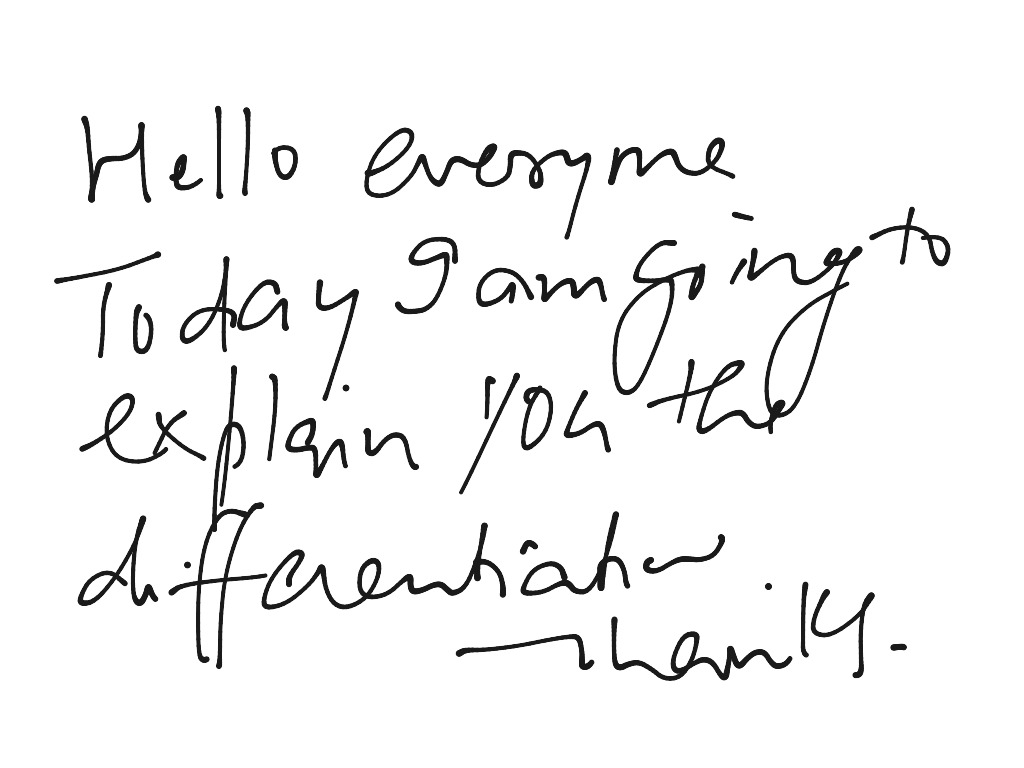 Hello everyone
Today I am going to
explain you the
differentiation